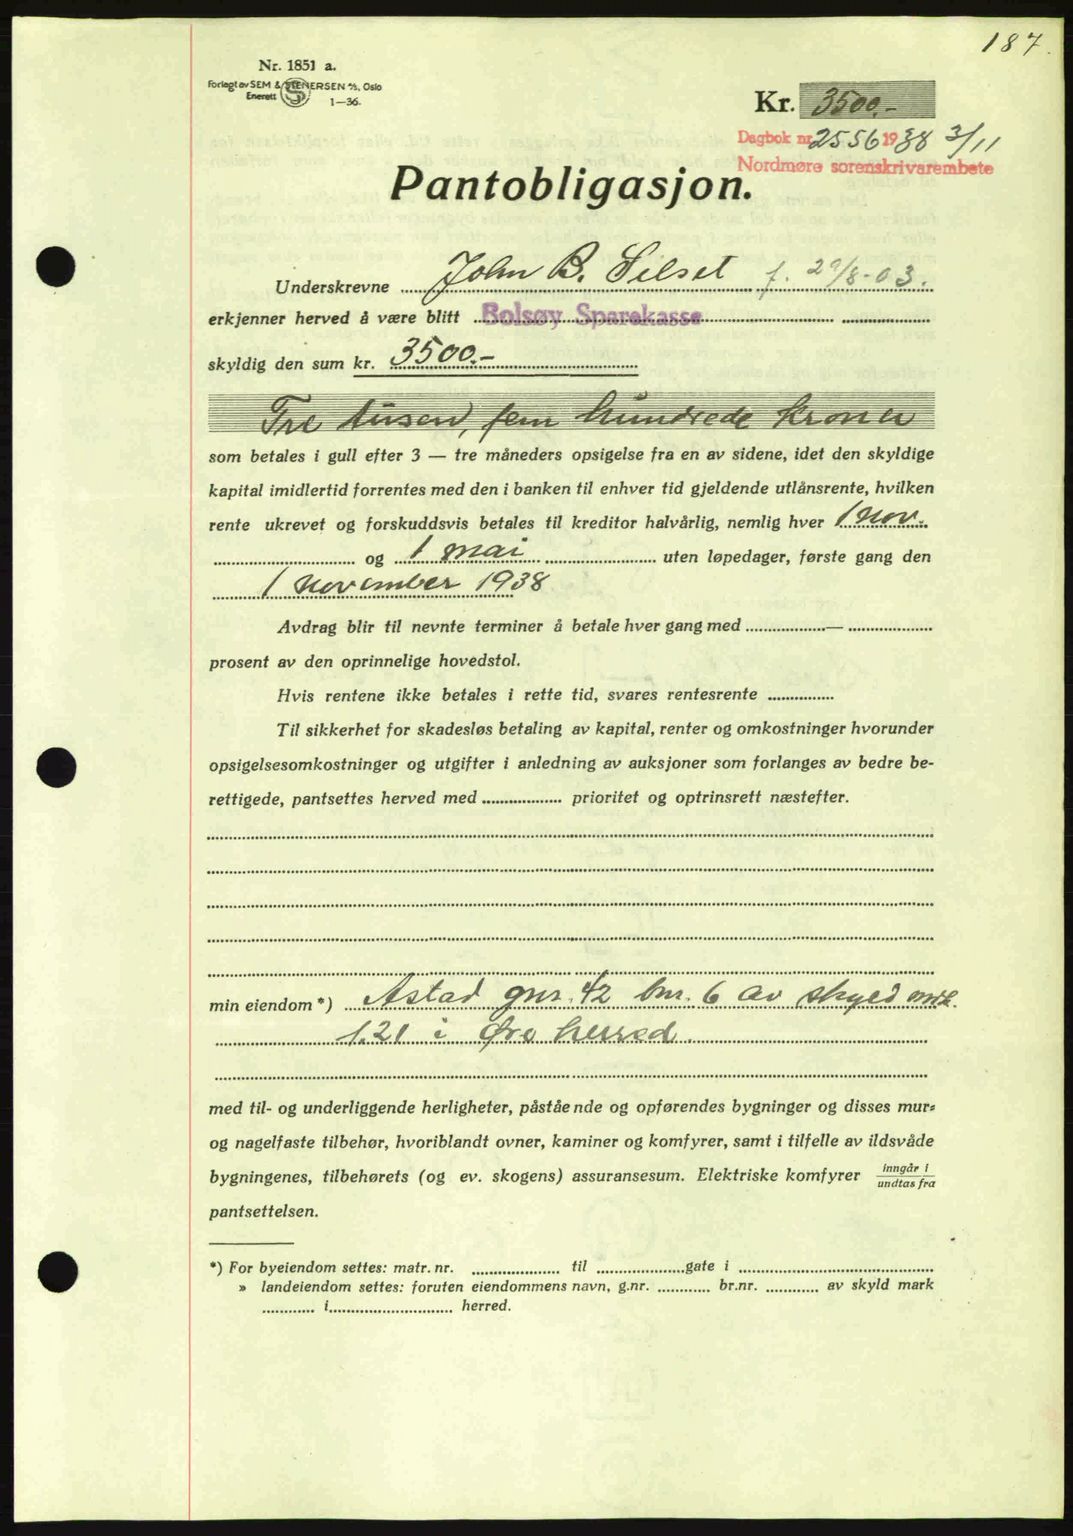 187.
Nr. 1851 a.
Forlagt av SEM & STENERSEN A/S, Oslo
Enerett 1—36.
Kr. 3500.-
Dagbok nr. 2556 1938 3/11
Nordmøre sorenskrivarembete
Pantobligasjon.
Underskrevne John B. Silset f. 29/8-03.
erkjenner herved å være blitt Bolsøy Sparekasse
skyldig den sum kr. 3500.-
Tre tusen, fem hundrede kroner
som betales i gull efter 3 — tre måneders opsigelse fra en av sidene, idet den skyldige
kapital imidlertid forrentes med den i banken til enhver tid gjeldende utlånsrente, hvilken
rente ukrevet og forskuddsvis betales til kreditor halvårlig, nemlig hver 1 nov.
og 1 mai uten løpedager, første gang den
1 november 1938
Avdrag blir til nevnte terminer å betale hver gang med —
prosent av den oprinnelige hovedstol.
Hvis rentene ikke betales i rette tid, svares rentesrente
Til sikkerhet for skadesløs betaling av kapital, renter og omkostninger hvorunder
opsigelsesomkostninger og utgifter i anledning av auksjoner som forlanges av bedre be-
rettigede, pantsettes herved med prioritet og optrinsrett næstefter.
min eiendom *) Astad gnr. 42 bnr. 6 av skyld mrk.
1.21 i Øre herred
med til- og underliggende herligheter, påstående og opførendes bygninger og disses mur-
og nagelfaste tilbehør, hvoriblandt ovner, kaminer og komfyrer, samt i tilfelle av ildsvåde
bygningenes, tilbehørets (og ev. skogens) assuransesum. Elektriske komfyrer inngår i
undtas fra
pantsettelsen.
*) For byeiendom settes: matr. nr. til gate i
» landeiendom settes: foruten eiendommens navn, g.nr. br.nr. av skyld mark
i herred.